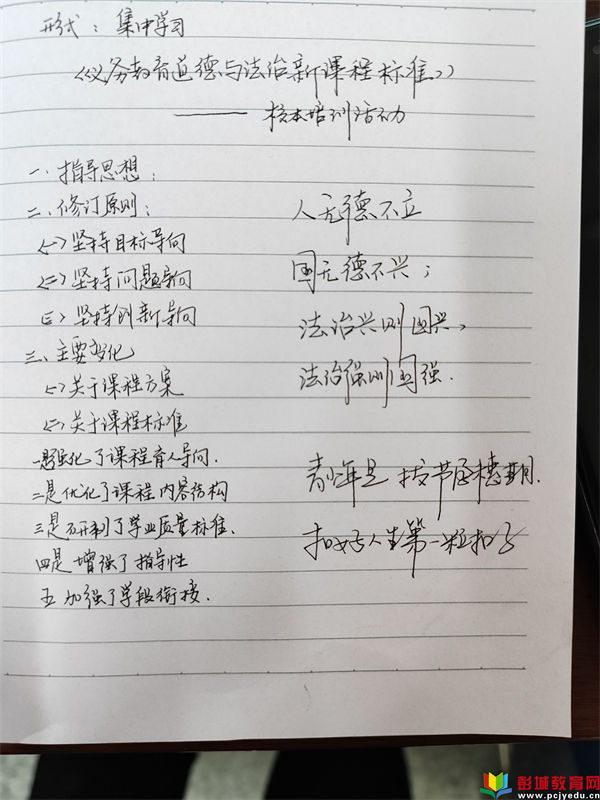 形式：集中学习
《义务教育道德与法治新课程标准》
——校本培训活动
一、指导思想：
二、修订原则：
（一）坚持目标导向
（二）坚持问题导向
（三）坚持创新导向
三、主要变化
（一）关于课程方案
（二）关于课程标准
一是强化了课程育人导向.
二是优化了课程内容结构
三是研制了学业质量标准.
四是增强了指导性
五加强了学段衔接.
人无德不立
国无德不兴；
法治兴则国兴，
法治强则国强.
青少年是拔节孕穗期.
扣好人生第一粒扣子
彭城教育网
www.pcjyedu.cn